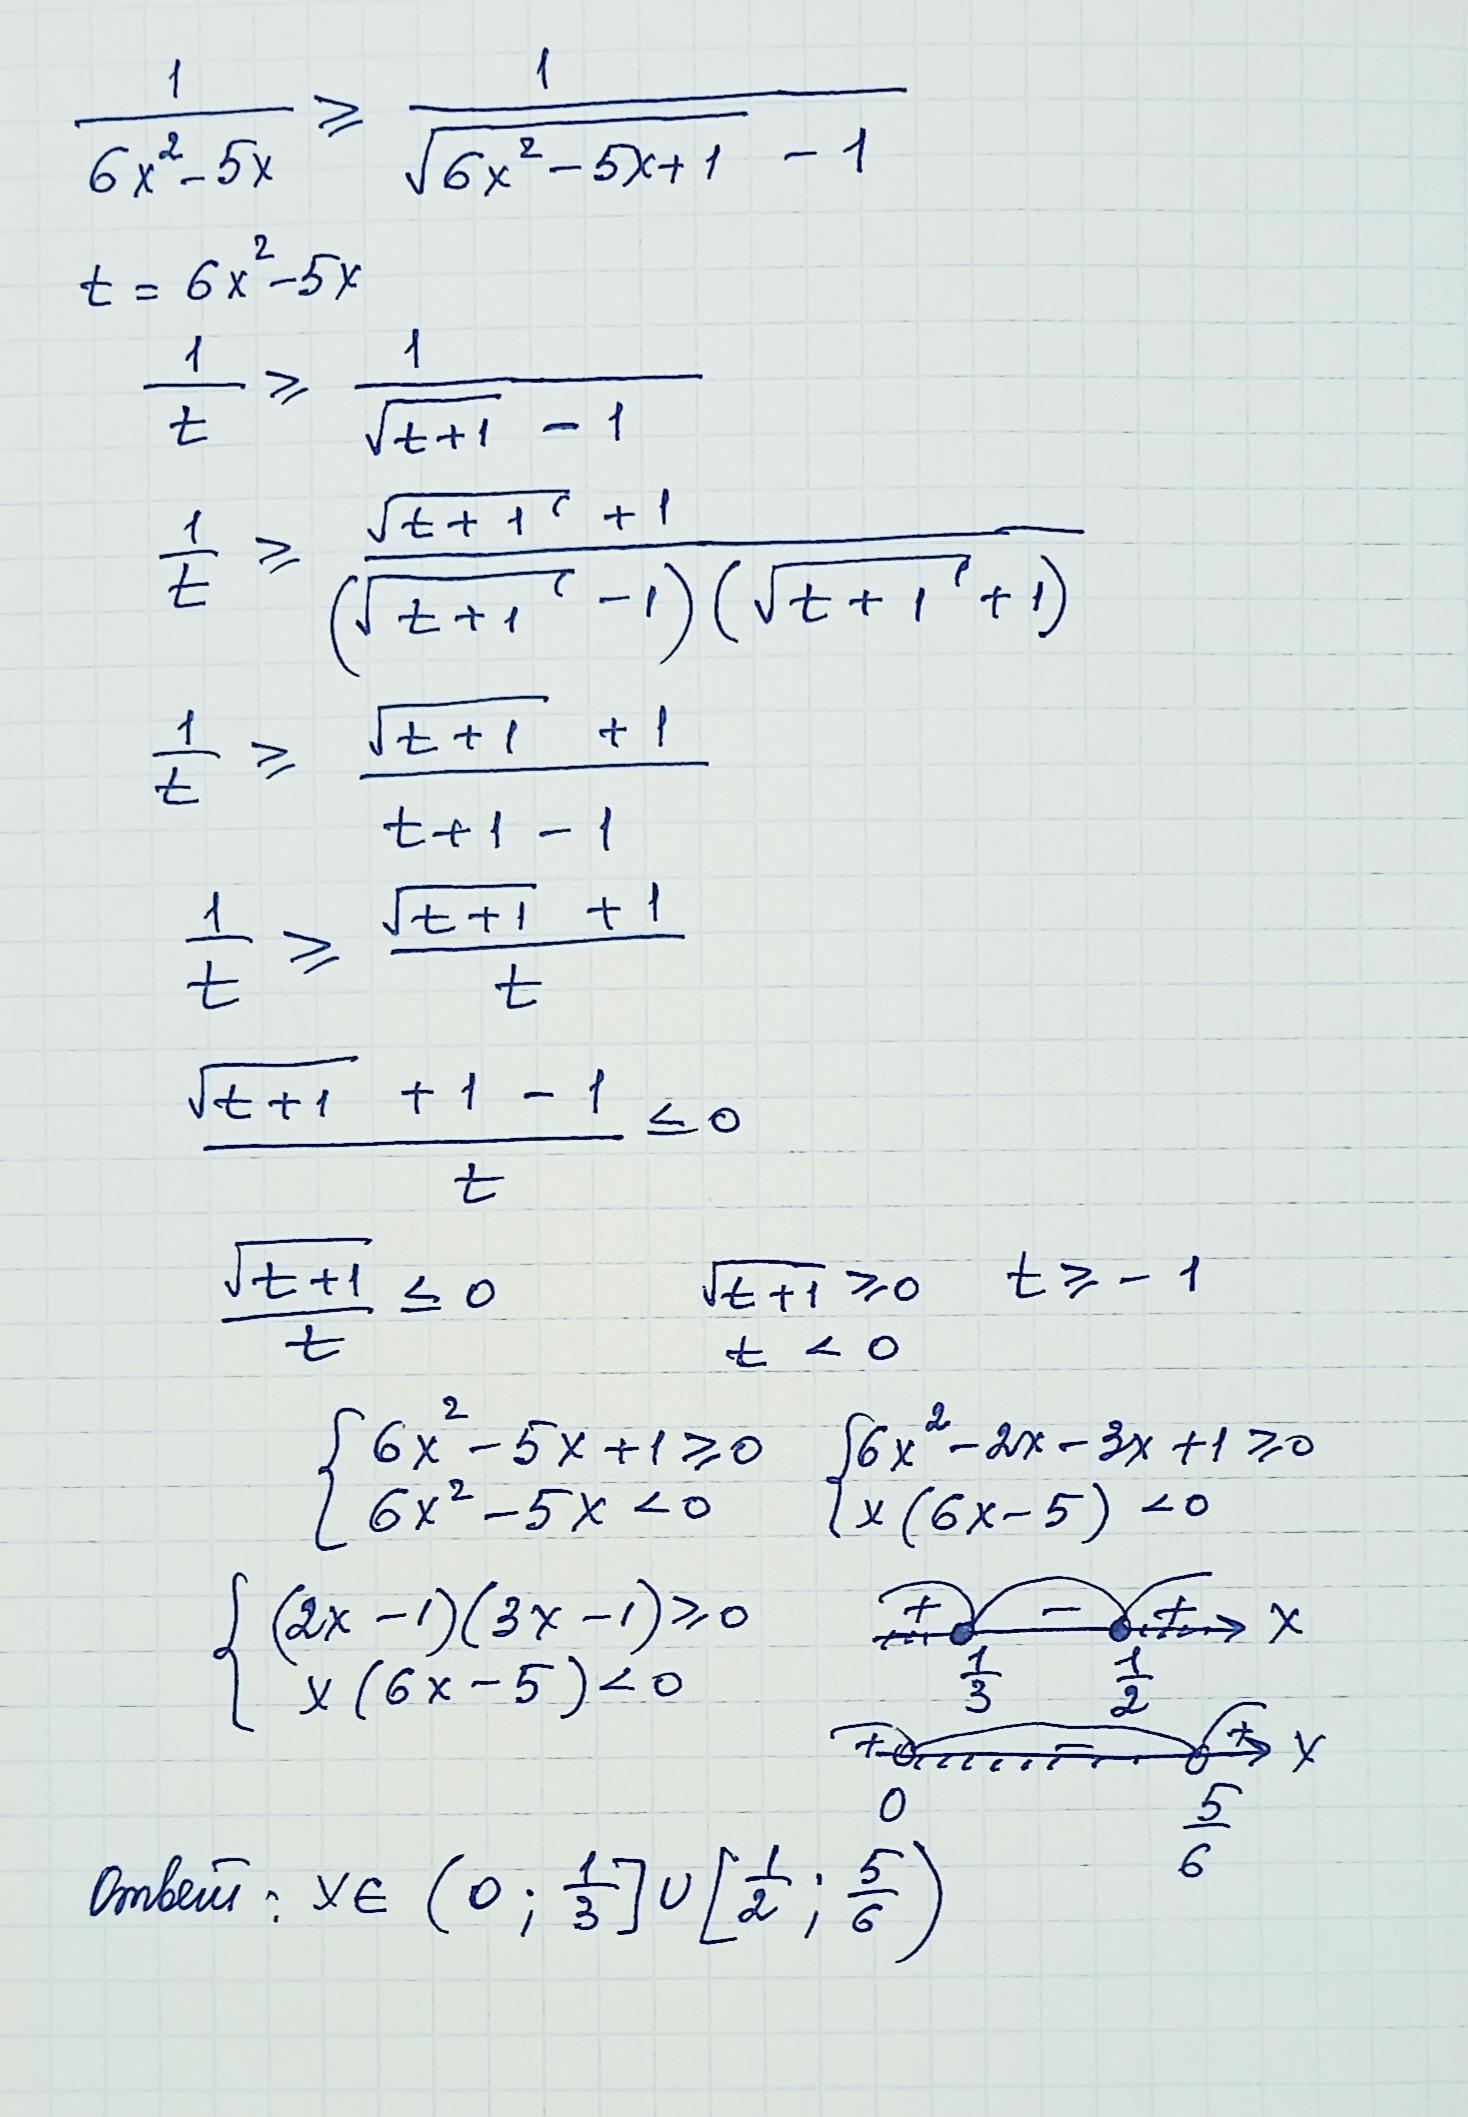 1/(6x²-5x) ⩾ 1/(√(6x²-5x+1) - 1)
t = 6x²-5x
1/t ⩾ 1/(√(t+1) - 1)
1/t ⩾ (√(t+1) + 1)/((√(t+1) - 1)(√(t+1) + 1))
1/t ⩾ (√(t+1) + 1)/(t+1-1)
1/t ⩾ (√(t+1) + 1)/t
(√(t+1) + 1 - 1)/t ≤ 0
√(t+1)/t ≤ 0 √(t+1) ⩾ 0 t ⩾ -1
t < 0
{ 6x²-5x+1 ⩾ 0 { 6x²-2x-3x+1 ⩾ 0
6x²-5x < 0 x(6x-5) < 0
{ (2x-1)(3x-1) ⩾ 0 + - + x
x(6x-5) < 0 1/3 1/2
+ - + x
0 5/6
Ответ: x∈ (0; 1/3]∪[1/2; 5/6)